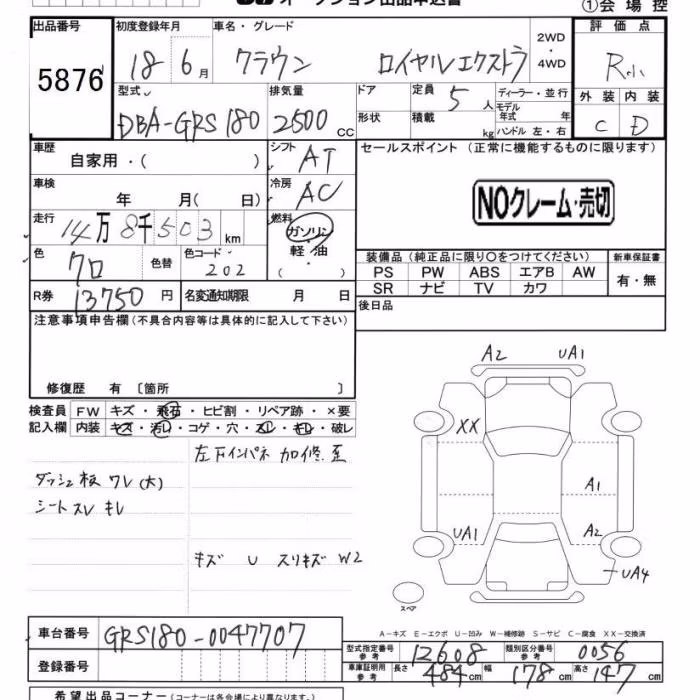 オークション出品申込書
①会場控
出品番号 初度登録年月 車名・グレード 2WD ・ 4WD 評価点
5876 18 6月 クラウン ロイヤルエクストラ R小
型式 排気量 ドア 定員 5人 ディーラー・並行 外装 内装
DBA-GRS180 2500 CC 形状 積載 kg モデル年式 年 ハンドル 左・右 C D
車歴 自家用・( ) シフト AT セールスポイント (正常に機能するものに限ります)
車検 年 月( 日) 冷房 AC NOクレーム・売切
走行 14万8千503km 燃料 ガソリン・軽油 ( )
色 クロ 色替 色コード 202 装備品 (純正品に限り○をつけてください) 新車保証書
PS PW ABS エアB AW 有・無
SR ナビ TV カワ
R券 13750円 名変通知期限 月 日 後日品
注意事項申告欄(不具合内容等は具体的に記入して下さい)
修復歴 有 〔箇所 〕
検査員記入欄 FW キズ・飛石・ヒビ割・リペア跡・×要
内装 キズ・汚レ・コゲ・穴・スレ・キレ・破レ
左下インパネ 加修歪
ダッシュ板 ワレ(大)
シートスレ キレ
キズ U スリキズ W2
A2 UA1
XX
A1
UA1 A2
UA4
スペア
A-キズ E-エクボ U-凹み W-補修跡 S-サビ C-腐食 XX-交換済
車台番号 GRS180-0047707
型式指定番号 参考 12608 類別区分番号 参考 0056
登録番号 車庫証明用 参考 長さ 484cm 幅 178cm 高さ 147cm
希望出品コーナー(コーナーは各会場により異なります)